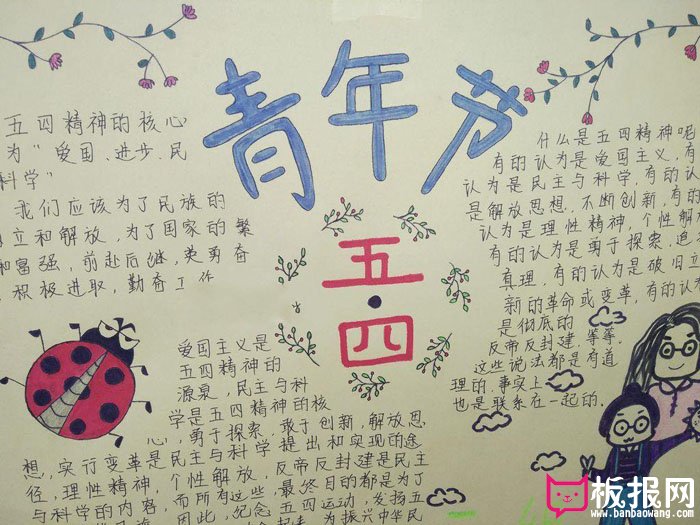 青年节
五·四
五四精神的核心
为"爱国、进步、民
科学"
我们应该为了民族的
立和解放,为了国家的繁
和富强,前赴后继,英勇奋
积极进取,勤奋工作
什么是五四精神呢
有的认为是爱国主义,有
认为是民主与科学,有的认
是解放思想,不断创新,有的
认为是理性精神,个性解
有的认为是勇于探索,追
真理,有的认为是破旧立
新的革命或变革,有的认为
是彻底的
反帝反封建,等等.
这些说法都是有道
理的.事实上
也是联系在一起的.
爱国主义是
五四精神的
源泉,民主与科
学是五四精神的核
心,勇于探索,敢于创新,解放思
想,实行变革是民主与科学提出和实现的途
径,理性精神,个性解放,反帝反封建是民主
与科学的内容,而所有这些,最终目的都是为了
因此,纪念五四运动,发扬五
为振兴中华民
板报网
www.banbaowang.com